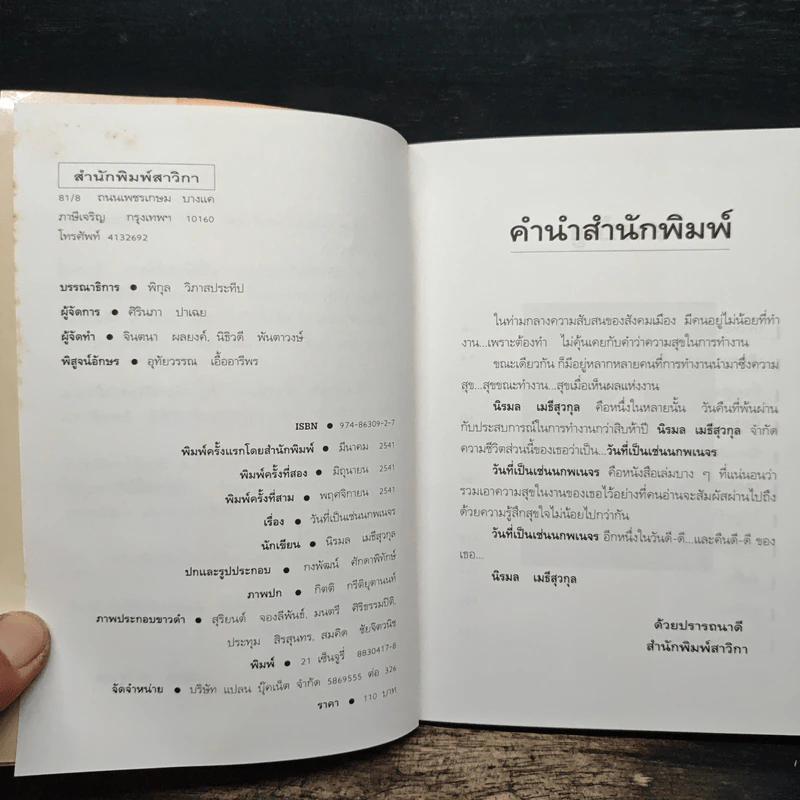 สำนักพิมพ์สาวิกา
81/8 ถนนเพชรเกษม บางแค
ภาษีเจริญ กรุงเทพฯ 10160
โทรศัพท์ 4132692
บรรณาธิการ ● พิกุล วิภาสประทีป
ผู้จัดการ ● ศิรินภา ปาเฉย
ผู้จัดทำ ● จินตนา ผลยงค์, นิธิวดี พันตาวงษ์
พิสูจน์อักษร ● อุทัยวรรณ เอื้ออารีพร
ISBN ● 974-86309-2-7
พิมพ์ครั้งแรกโดยสำนักพิมพ์ ● มีนาคม 2541
พิมพ์ครั้งที่สอง ● มิถุนายน 2541
พิมพ์ครั้งที่สาม ● พฤศจิกายน 2541
เรื่อง ● วันที่เป็นเช่นนกพเนจร
นักเขียน ● นิรมล เมธีสุวกุล
ปกและรูปประกอบ ● กงพัฒน์ ศักดาพิทักษ์
ภาพปก ● กิตติ กรีติยุตานนท์
ภาพประกอบขาวดำ ● สุริยนต์ จองลีพันธ์, มนตรี ศิริธรรมปิติ,
ประทุม สิรสุนทร, สมคิด ชัยจิตวนิช
พิมพ์ ● 21 เซ็นจูรี่ 8830417-8
จัดจำหน่าย ● บริษัท แปลน บุ๊คเน็ต จำกัด 5869555 ต่อ 326
ราคา ● 110 บาท
คำนำสำนักพิมพ์
ในท่ามกลางความสับสนของสังคมเมือง มีคนอยู่ไม่น้อยที่ทำ
งาน...เพราะต้องทำ ไม่คุ้นเคยกับคำว่าความสุขในการทำงาน
ขณะเดียวกัน ก็มีอยู่หลากหลายคนที่การทำงานนำมาซึ่งความ
สุข...สุขขณะทำงาน...สุขเมื่อเห็นผลแห่งงาน
นิรมล เมธีสุวกุล คือหนึ่งในหลายนั้น วันคืนที่พ้นผ่าน
กับประสบการณ์ในการทำงานกว่าสิบห้าปี นิรมล เมธีสุวกุล จำกัด
ความชีวิตส่วนนี้ของเธอว่าเป็น...วันที่เป็นเช่นนกพเนจร
วันที่เป็นเช่นนกพเนจร คือหนังสือเล่มบาง ๆ ที่แน่นอนว่า
รวมเอาความสุขในงานของเธอไว้อย่างที่คนอ่านจะสัมผัสผ่านไปถึง
ด้วยความรู้สึกสุขใจไม่น้อยไปกว่ากัน
วันที่เป็นเช่นนกพเนจร อีกหนึ่งในวันดี-ดี...และคืนดี-ดี ของ
เธอ...
นิรมล เมธีสุวกุล
ด้วยปรารถนาดี
สำนักพิมพ์สาวิกา